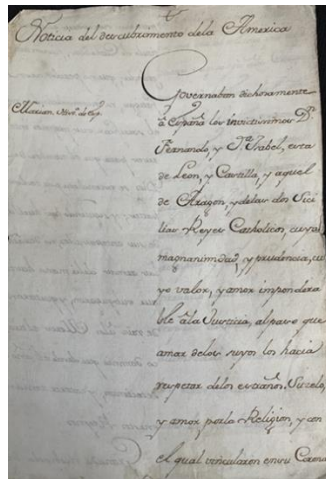 Noticia del descubramento dela America
Governaban dichosamente
à España los invictissimos Dn.
Fernando, y Da. Isabel, esta
de Leon, y Castilla, y aquel
de Aragon, y delas dos Sici
lias Reyes Catholicos, cuya
magnanimidad, y prudencia, cu
yo valor, y amor impondera
ble àla Justicia, alpaso que
amar delos suyos los hacia
respetar delos estraños. Su zelo,
y amor porla Religion, y con
el qual vincularon en su Corona